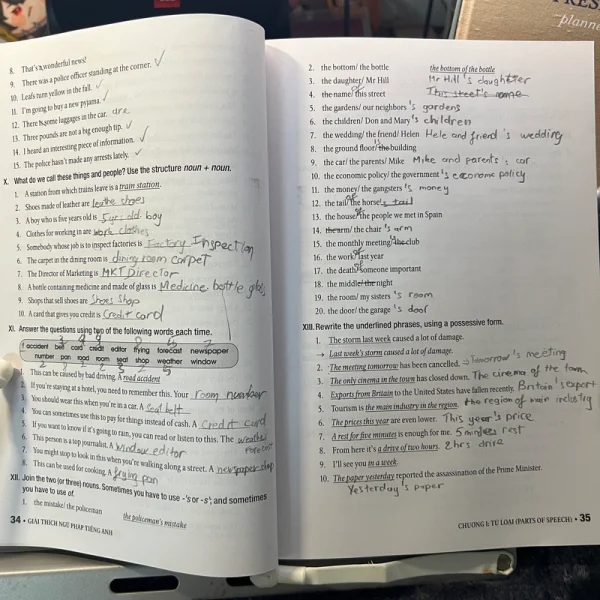 8. That's a wonderful news!
9. There was a police officer standing at the corner. ✓
10. Leafs turn yellow in the fall. ✓
11. I'm going to buy a new pyjama. ✓
12. There is some luggages in the car. are
13. Three pounds are not a big enough tip. ✓
14. I heard an interesting piece of information. ✓
15. The police hasn't made any arrests lately. ✓
X. What do we call these things and people? Use the structure noun + noun.
1. A station from which trains leave is a train station.
2. Shoes made of leather are leathe shoes
3. A boy who is five years old is 5 yr. old. boy
4. Clothes for working in are work clothes
5. Somebody whose job is to inspect factories is Factory Inspection
6. The carpet in the dining room is dining room carpet
7. The Director of Marketing is MKT Director
8. A bottle containing medicine and made of glass is Medicine. bottle
9. Shops that sell shoes are Shoes Shop
10. A card that gives you credit is Credit card
XI. Answer the questions using two of the following words each time.
accident belt card credit editor frying forecast newspaper
number pan road room seat shop weather window
1. This can be caused by bad driving. A road accident
2. If you're staying at a hotel, you need to remember this. Your room number
3. You should wear this when you're in a car. A seat belt
4. You can sometimes use this to pay for things instead of cash. A credit card
5. If you want to know if it's going to rain, you can read or listen to this. The weather forecast
6. This person is a top journalist. A window editor
7. You might stop to look in this when you're walking along a street. A newspaper shop
8. This can be used for cooking. A frying pan
XII. Join the two (or three) nouns. Sometimes you have to use -'s or -s'; and sometimes
you have to use of.
1. the mistake/ the policeman the policeman's mistake
34 • GIẢI THÍCH NGỮ PHÁP TIẾNG ANH
2. the bottom/ the bottle the bottom of the bottle
3. the daughter/ Mr Hill Mr Hill's daughter
4. the name/ of this street This street's name
5. the gardens/ our neighbors 's gardens
6. the children/ Don and Mary 's children
7. the wedding/ the friend/ Helen Hele and friend 's wedding
8. the ground floor/ the building
9. the car/ the parents/ Mike Mike and parents's car
10. the economic policy/ the government 's economic policy
11. the money/ the gangsters 's money
12. the tail/ The horse's tail
13. the house/ of The people we met in Spain
14. the arm/ the chair 's arm
15. the monthly meeting/ the club
16. the work/ of last year
17. the death/ of someone important
18. the middle/ the night
19. the room/ my sisters 's room
20. the door/ the garage 's door
XIII. Rewrite the underlined phrases, using a possessive form.
1. The storm last week caused a lot of damage.
→ Last week's storm caused a lot of damage.
2. The meeting tomorrow has been cancelled. → Tomorrow's meeting
3. The only cinema in the town has closed down. The cinema of the town
4. Exports from Britain to the United States have fallen recently. Britain's export
5. Tourism is the main industry in the region. the region of main industry
6. The prices this year are even lower. This year's price
7. A rest for five minutes is enough for me. 5 minutes rest
8. From here it's a drive of two hours. 2 hrs. drive
9. I'll see you in a week.
10. The paper yesterday reported the assassination of the Prime Minister.
Yesterday's paper
CHƯƠNG I: TỪ LOẠI (PARTS OF SPEECH) • 35